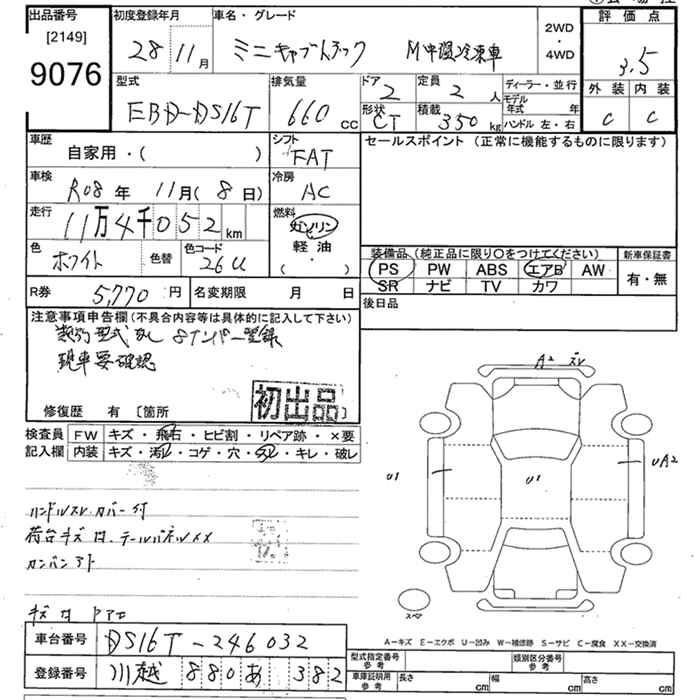 出品番号 初度登録年月 車名・グレード 2WD・4WD 評価点
[2149]
9076
28年 11月 ミニキャブトラック M中温冷凍車 3.5
型式 排気量 ドア 2 定員 2人 ディーラー・並行 外装 内装
EBD-DS16T 660cc 形状 CT 積載 350kg モデル年式 年 C C
ハンドル 左・右
車歴 自家用・( ) シフト FAT セールスポイント (正常に機能するものに限ります)
車検 R08年 11月(8日) 冷房 AC
走行 11万4千052km 燃料 ガソリン 軽油・( )
色 ホワイト 色替 色コード 26U
装備品 (純正品に限り○をつけてください) 新車保証書
PS PW ABS エアB AW 有・無
SR ナビ TV カワ
R券 5,770円 名変期限 月 日 後日品
注意事項申告欄(不具合内容等は具体的に記入して下さい)
類別型式なし 8ナンバー登録
現車要確認
修復歴 有 〔箇所
初出品
検査員記入欄 FW キズ・飛石・ヒビ割・リペア跡・×要
内装 キズ・汚レ・コゲ・穴・スレ・キレ・破レ
ハンドルスレ カバー付
荷台キズ
カンバンアト
A2 ズレ
U1 U1 UA2
スペア
A-キズ E-エクボ U-凹み W-補修跡 S-サビ C-腐食 XX-交換済
車台番号 DS16T-246032
登録番号 川越 880あ382
型式指定番号 参考 類別区分番号 参考
車庫証明用 参考 長さ cm 幅 cm 高さ cm